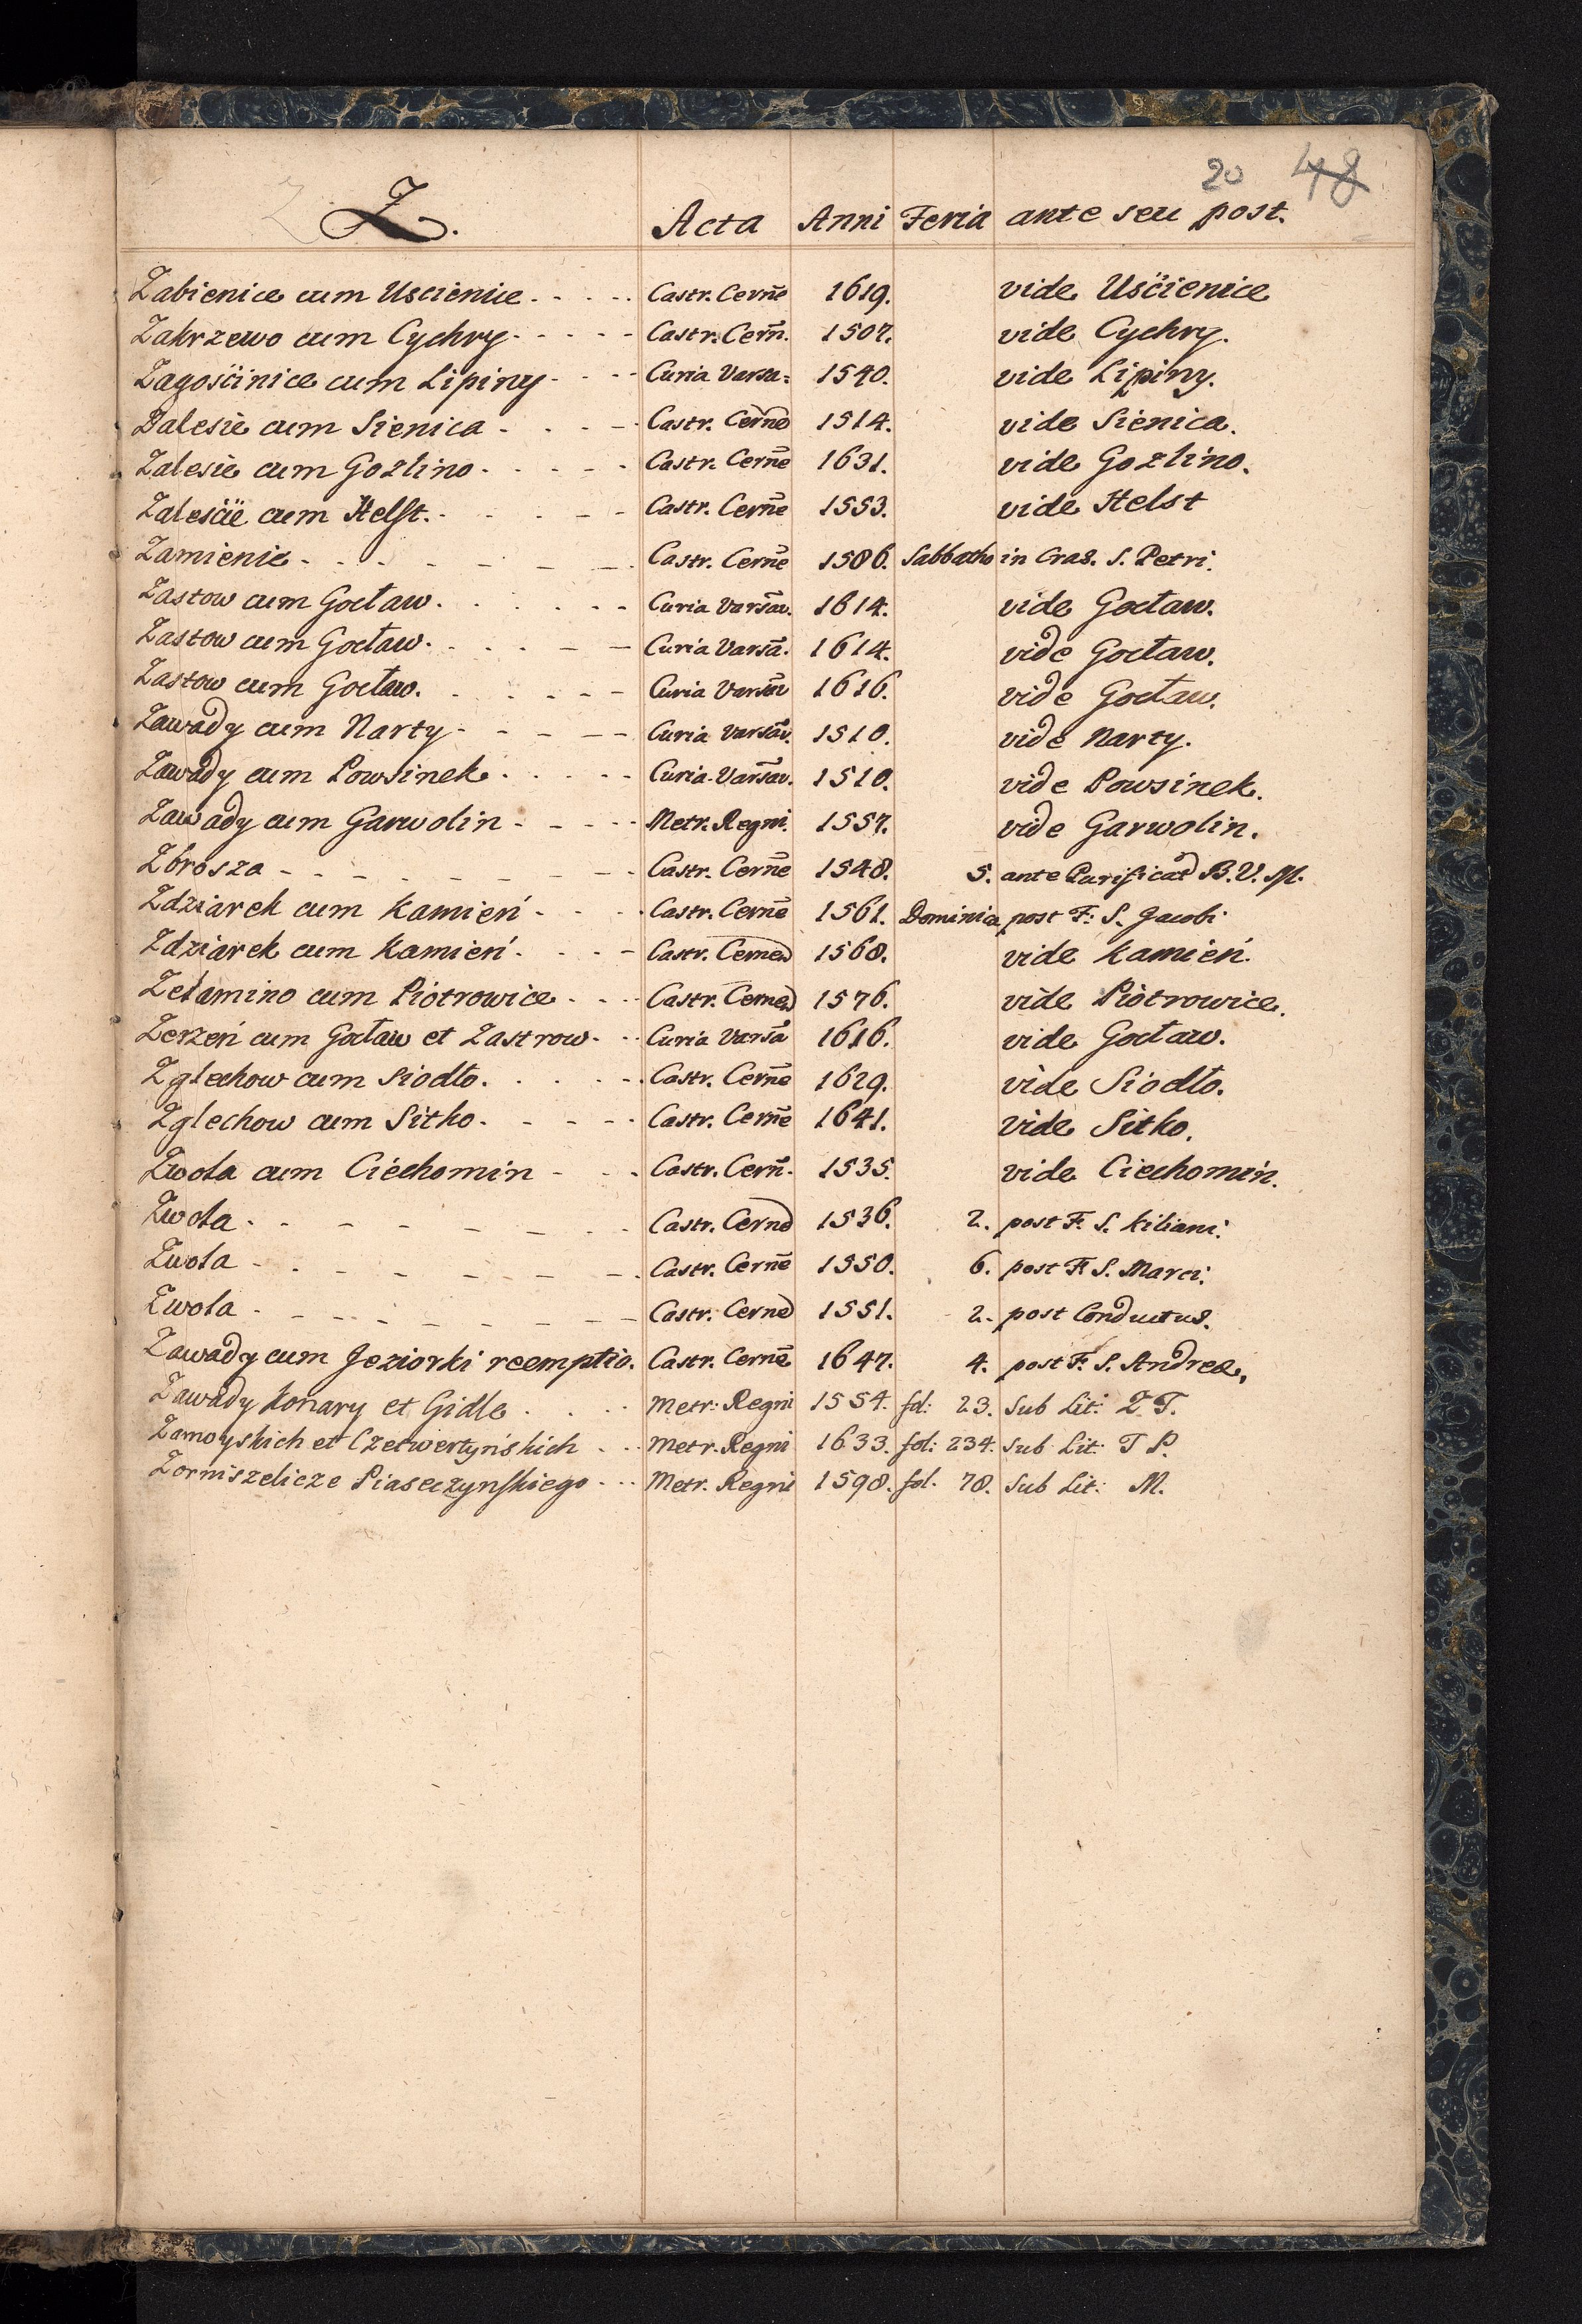 20 48
Z. Acta Anni Feria ante seu post.
Zabienice cum Uscienice Castr. Cerne 1619. vide Uścienice
Zakrzewo cum Cychry Castr. Cern. 1507. vide Cychry.
Zagościnice cum Lipiny Curia Varsa: 1540. vide Lipiny.
Zalesie cum Sienica Castr. Cerne 1514. vide Sienica.
Zalesie cum Gozlino Castr. Cerne 1631. vide Gozlino.
Zaleście cum Helst. Castr. Cerne 1553. vide Helst
Zamienie Castr. Cerne 1586. Sabbatho in Cras. S. Petri.
Zastow cum Gocław. Curia Varsav. 1614. vide Gocław.
Zastow cum Gocław. Curia Varsa. 1614. vide Gocław.
Zastow cum Gocław. Curia Varsav 1616. vide Gocław.
Zawady cum Narty Curia Varsav. 1510. vide Narty.
Zawady cum Powsinek Curia Varsav. 1510. vide Powsinek.
Zawady cum Garwolin Metr. Regni. 1557. vide Garwolin.
Zbrosza Castr. Cerne 1548. 5. ante Purificat B.V.M.
Zdziarek cum Kamień Castr. Cerne 1561. Dominica post F. S. Jacobi
Zdziarek cum Kamień Castr. Cerne 1568. vide Kamień.
Zelamino cum Piotrowice Castr. Cerne 1576. vide Piotrowice.
Zerzeń cum Gocław et Zastrow Curia Varsa 1616. vide Gocław.
Zglechow cum Siodło. Castr. Cerne 1629. vide Siodło.
Zglechow cum Sitko. Castr. Cerne 1641. vide Sitko.
Zwola cum Ciechomin Castr. Cern. 1535. vide Ciechomin.
Zwola Castr. Cerne 1536. 2. post F. S. Kiliani.
Zwola Castr. Cerne 1550. 6. post F. S. Marci.
Zwola Castr. Cerne 1551. 2. post Conductus.
Zawady cum Jeziorki reemptio. Castr. Cerne 1647. 4. post F. S. Andreæ,
Zawady Konary et Gidle Metr: Regni 1554. fol: 23. Sub Lit: Z T.
Zamoyskich et Czetwertyńskich Metr. Regni 1633. fol: 234. Sub Lit: T P.
Zorniszelicze Piaseczynskiego Metr. Regni 1598. fol. 78. Sub Lit: M.